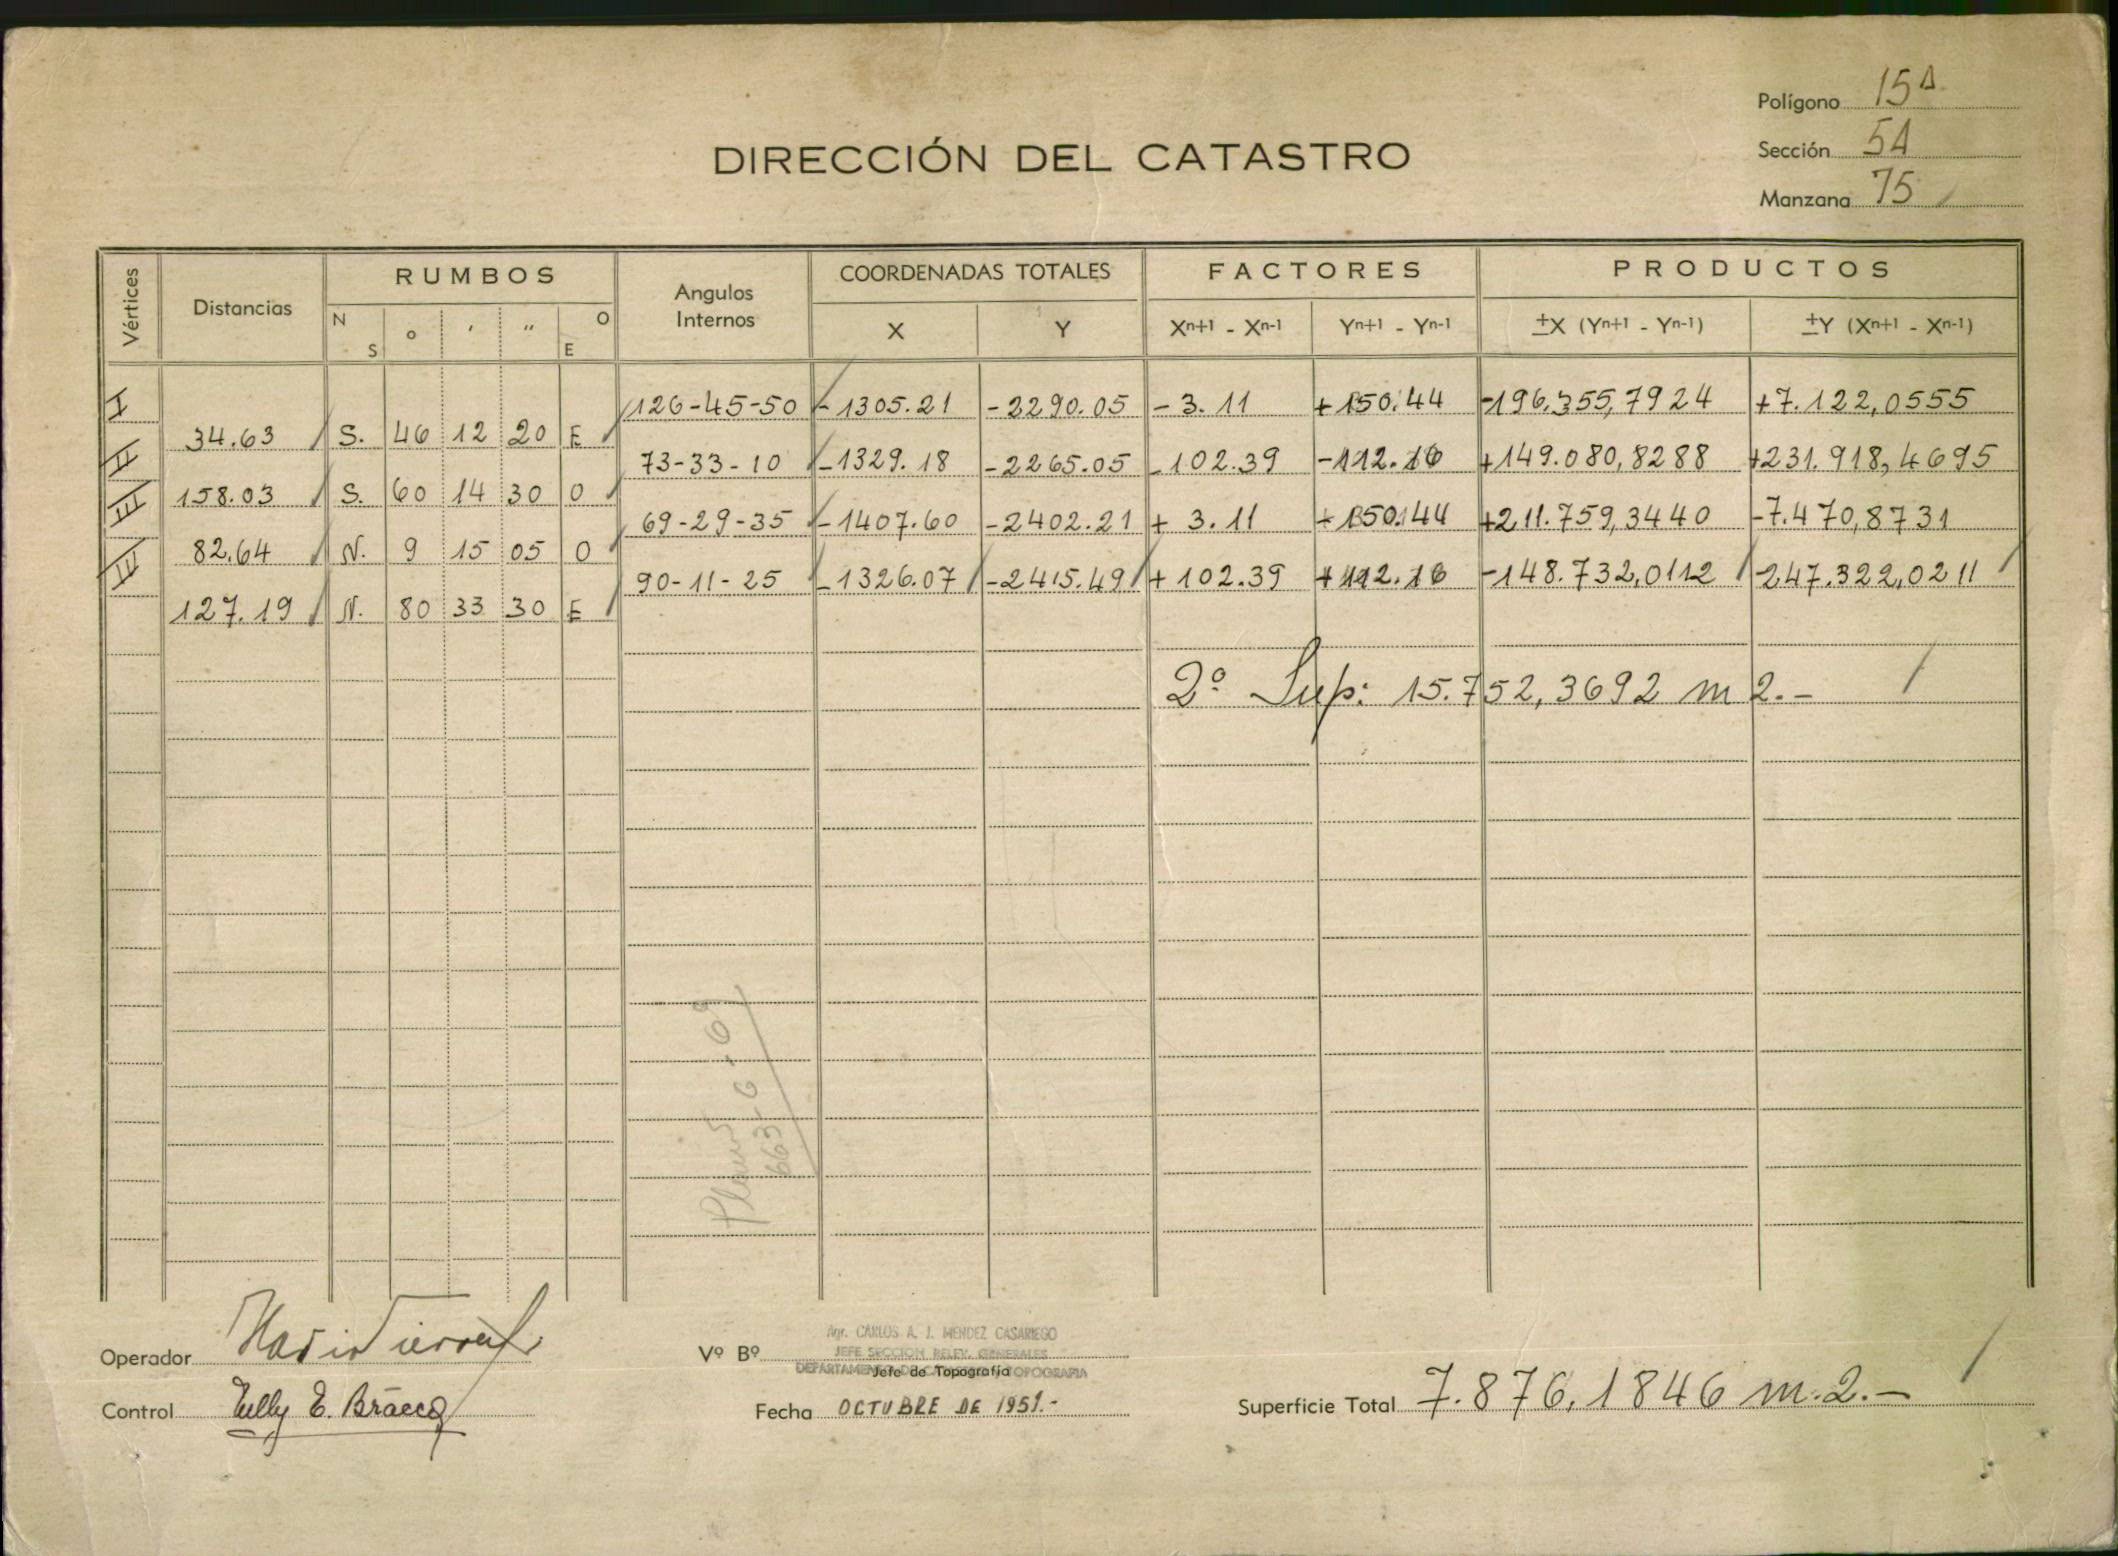 Polígono 15A
Sección 5A
Manzana 75
DIRECCIÓN DEL CATASTRO
Vértices Distancias RUMBOS Angulos Internos COORDENADAS TOTALES FACTORES PRODUCTOS
N S ° ' " O E X Y Xn+1 - Xn-1 Yn+1 - Yn-1 ±X (Yn+1 - Yn-1) ±Y (Xn+1 - Xn-1)
I 126-45-50 -1305.21 -2290.05 -3.11 +150.44 -196.355,7924 +7.122,0555
34.63 S. 46 12 20 E
II 73-33-10 -1329.18 -2265.05 -102.39 -112.16 +149.080,8288 +231.918,4695
158.03 S. 60 14 30 O
III 69-29-35 -1407.60 -2402.21 + 3.11 -150.44 +211.759,3440 -7.470,8731
82.64 N. 9 15 05 O
IV 90-11-25 -1326.07 -2415.49 +102.39 +112.16 -148.732,0112 -247.322,0211
127.19 N. 80 33 30 E
2º Sup: 15.752,3692 m2.-
663-6-69
Operador
Control Tully E. Bracco
Vº Bº Agr. CARLOS A. J. MENDEZ CASARIEGO
JEFE SECCION RELEV. GENERALES
DEPARTAMENTO DE CATASTRO Y TOPOGRAFIA
Jefe de Topografía
Fecha OCTUBRE DE 1951.-
Superficie Total 7.876,1846 m.2.-